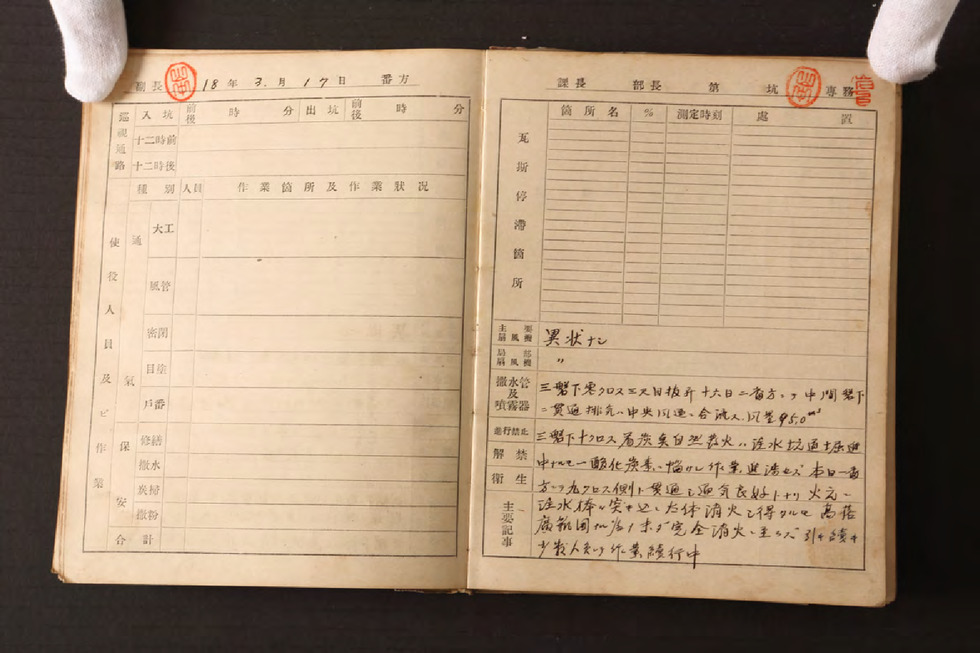 副長 18年3月17日 番方
巡視通路 入坑 前後 時 分 出坑 前後 時 分
十二時前
十二時後
種別 人員 作業箇所及作業狀況
使役人員及ビ作業
通氣
大工
風管
密閉
目塗
戶番
保安
修繕
撒水
炭掃
撒粉
合計
課長 部長 第 坑 專務
瓦斯停滯箇所
箇所名 % 測定時刻 處置
主要扇風機 異狀ナシ
局部扇風機 〃
撒水管及噴霧器
進行禁止
解禁
衛生
主要記事
三盤下零クロス三尺目抜昇十六日二番方ヨリ中間盤下
ニ貫通排気ハ中央風道ニ合流ス風量950m³
三盤下十クロス 自然発火ハ注水坑道掘進
中ナルモ一酸化炭素ニ悩サレ作業進渉セズ本日一番
方ヨリ九クロス側ト貫通シ通気良好トナリ火元ニ
注水 大体消火シ得タルモ高落
廣範囲ノ為メ未ダ完全消火ニ至ラズ引キ續キ
少数人員ノ作業續行中